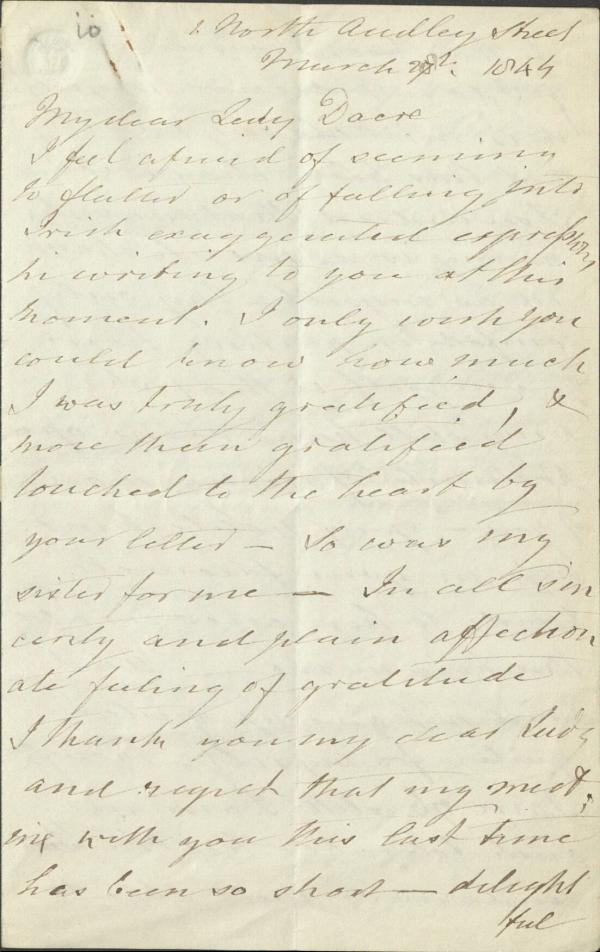 10
1 North Audley Street
March 28th. 1844
My dear Lady Dacre
I feel afraid of seeming
to flatter or of falling into
Irish exaggerated expressions
in writing to you at this
moment. I only wish you
could know how much
I was truly gratified, &
more than gratified
touched to the heart by
your letter — So was my
sister for me — In all sin
cerity and plain affection
ate feeling of gratitude
I thank you my dear Lady
and regret that my meet
ing with you this last time
has been so short — delight
ful